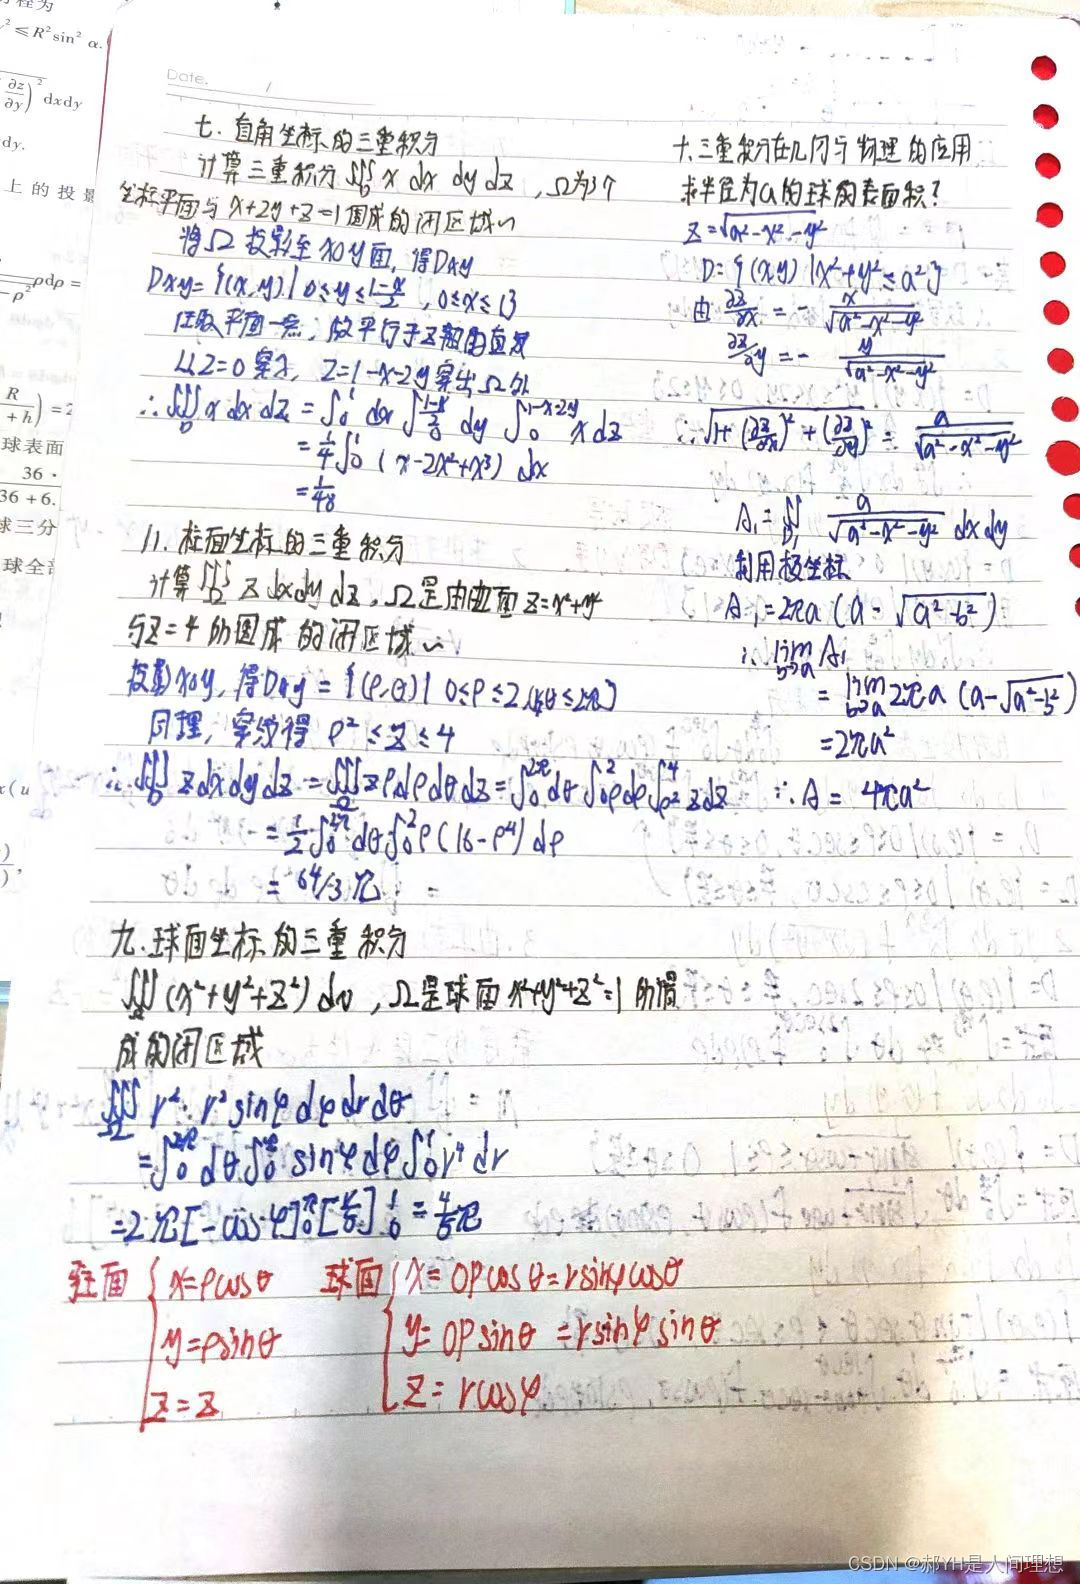 Date.
七. 直角坐标的三重积分
计算三重积分 ∭ x dx dy dz , Ω为3个
坐标平面与 x+2y+z=1 围成的闭区域~
将Ω投影至xoy面, 得Dxy
Dxy={(x,y)| 0≤y≤(1-x)/2 , 0≤x≤1}
任取平面一点, 做平行于z轴的直线
从Z=0穿入, Z=1-x-2y穿出Ω外
∴ ∭ x dx dz = ∫₀¹ dx ∫₀^((1-x)/2) dy ∫₀^(1-x-2y) x dz
= 1/4 ∫₀¹ (x-2x²+x³) dx
= 1/48
八. 柱面坐标的三重积分
计算 ∭ z dx dy dz, Ω是由曲面 z=x²+y²
与z=4 所围成的闭区域~
投影xoy, 得Dxy = {(ρ,θ)| 0≤ρ≤2, 0≤θ≤2π}
同理, 穿线得 ρ²≤z≤4
∴ ∭ z dx dy dz = ∭ zρ dρ dθ dz = ∫₀^2π dθ ∫₀² ρ dρ ∫ρ²⁴ z dz
= 1/2 ∫₀^2π dθ ∫₀² ρ(16-ρ⁴) dρ
= 64/3 π
九. 球面坐标的三重积分
∭ (x²+y²+z²) dv , Ω是球面 x²+y²+z²=1 所围
成的闭区域
∭ r²· r² sinφ dφ dr dθ
= ∫₀^2π dθ ∫₀^π sinφ dφ ∫₀¹ r⁴ dr
= 2π[-cosφ]₀^π [r⁵/5]₀¹ = 4/5 π
柱面 { x=ρcosθ
y=ρsinθ
z=z
球面 { x= OPcosθ = rsinφcosθ
y= OPsinθ = rsinφ sinθ
z = rcosφ
十. 三重积分在几何与物理的应用
求半径为a的球的表面积?
z=√(a²-x²-y²)
D={(x,y) | x²+y²≤a²}
由 ∂z/∂x = - x/√(a²-x²-y²)
∂z/∂y = - y/√(a²-x²-y²)
∴ √(1+(∂z/∂x)²+(∂z/∂y)²) = a/√(a²-x²-y²)
A₁ = ∬ a/√(a²-x²-y²) dx dy
利用极坐标
A₁=2πa (a-√(a²-b²))
∴ lim b→a A₁
= lim b→a 2πa (a-√(a²-b²))
=2πa²
∴ A = 4πa²
≤R² sin² α.
dxdy
dy.
上的投影
ρdρ =
球表面
36 ·
36 + 6.
球三分
球全部
CSDN @郝YH是人间理想